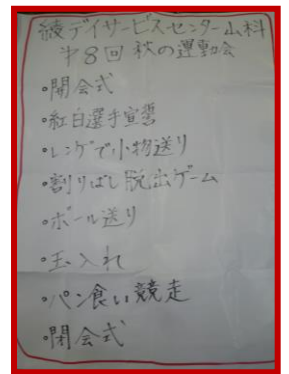 綾デイサービスセンター山科
第8回 秋の運動会
・開会式
・紅白選手宣誓
・レンゲで小物送り
・割りばし脱出ゲーム
・ボール送り
・玉入れ
・パン食い競走
・閉会式